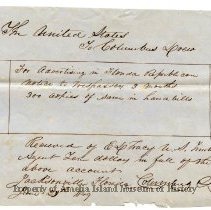 The United States
To Columbus Drew
For Advertising in Florida Republican
notice to trespassers 3 months
300 copies of same in handbills
Received of U. S.
Agent Ten dollars in full of the
above account.
Jacksonville Florida Columbus
Property of Amelia Island Museum of History